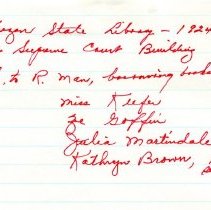 State Library - 1924
Supreme Court Building
to R. Man, borrowing books
Miss Keefer
Goffin
Julia Martindale
Kathryn Brown,